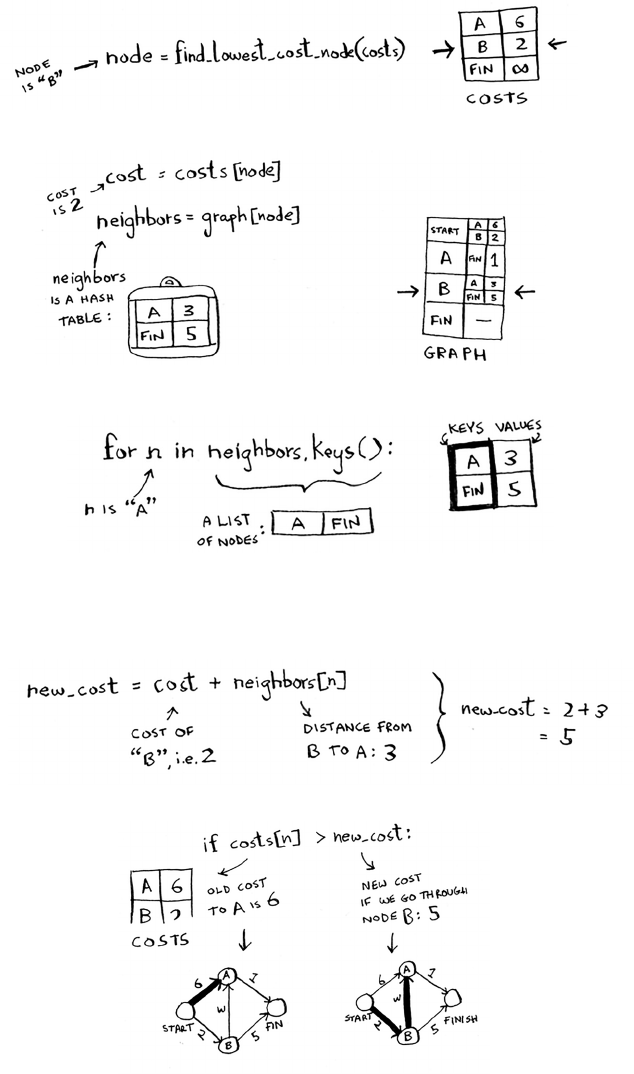 node = find_lowest_cost_node(costs)
NODE
IS "B"
A 6
B 2
FIN ∞
COSTS
cost = costs[node]
COST
IS 2
neighbors = graph[node]
neighbors
IS A HASH
TABLE:
A 3
FIN 5
START A 6
B 2
A FIN 1
B A 3
FIN 5
FIN —
GRAPH
for n in neighbors.keys():
n IS "A"
A LIST
OF NODES:
A FIN
KEYS VALUES
A 3
FIN 5
new_cost = cost + neighbors[n]
COST OF
"B", i.e. 2
DISTANCE FROM
B TO A: 3
new_cost = 2+3
= 5
if costs[n] > new_cost:
A 6
B 2
COSTS
OLD COST
TO A IS 6
NEW COST
IF WE GO THROUGH
NODE B: 5
A
6 1
START FIN
2 5
B
A
6 1
START FINISH
2 5
B